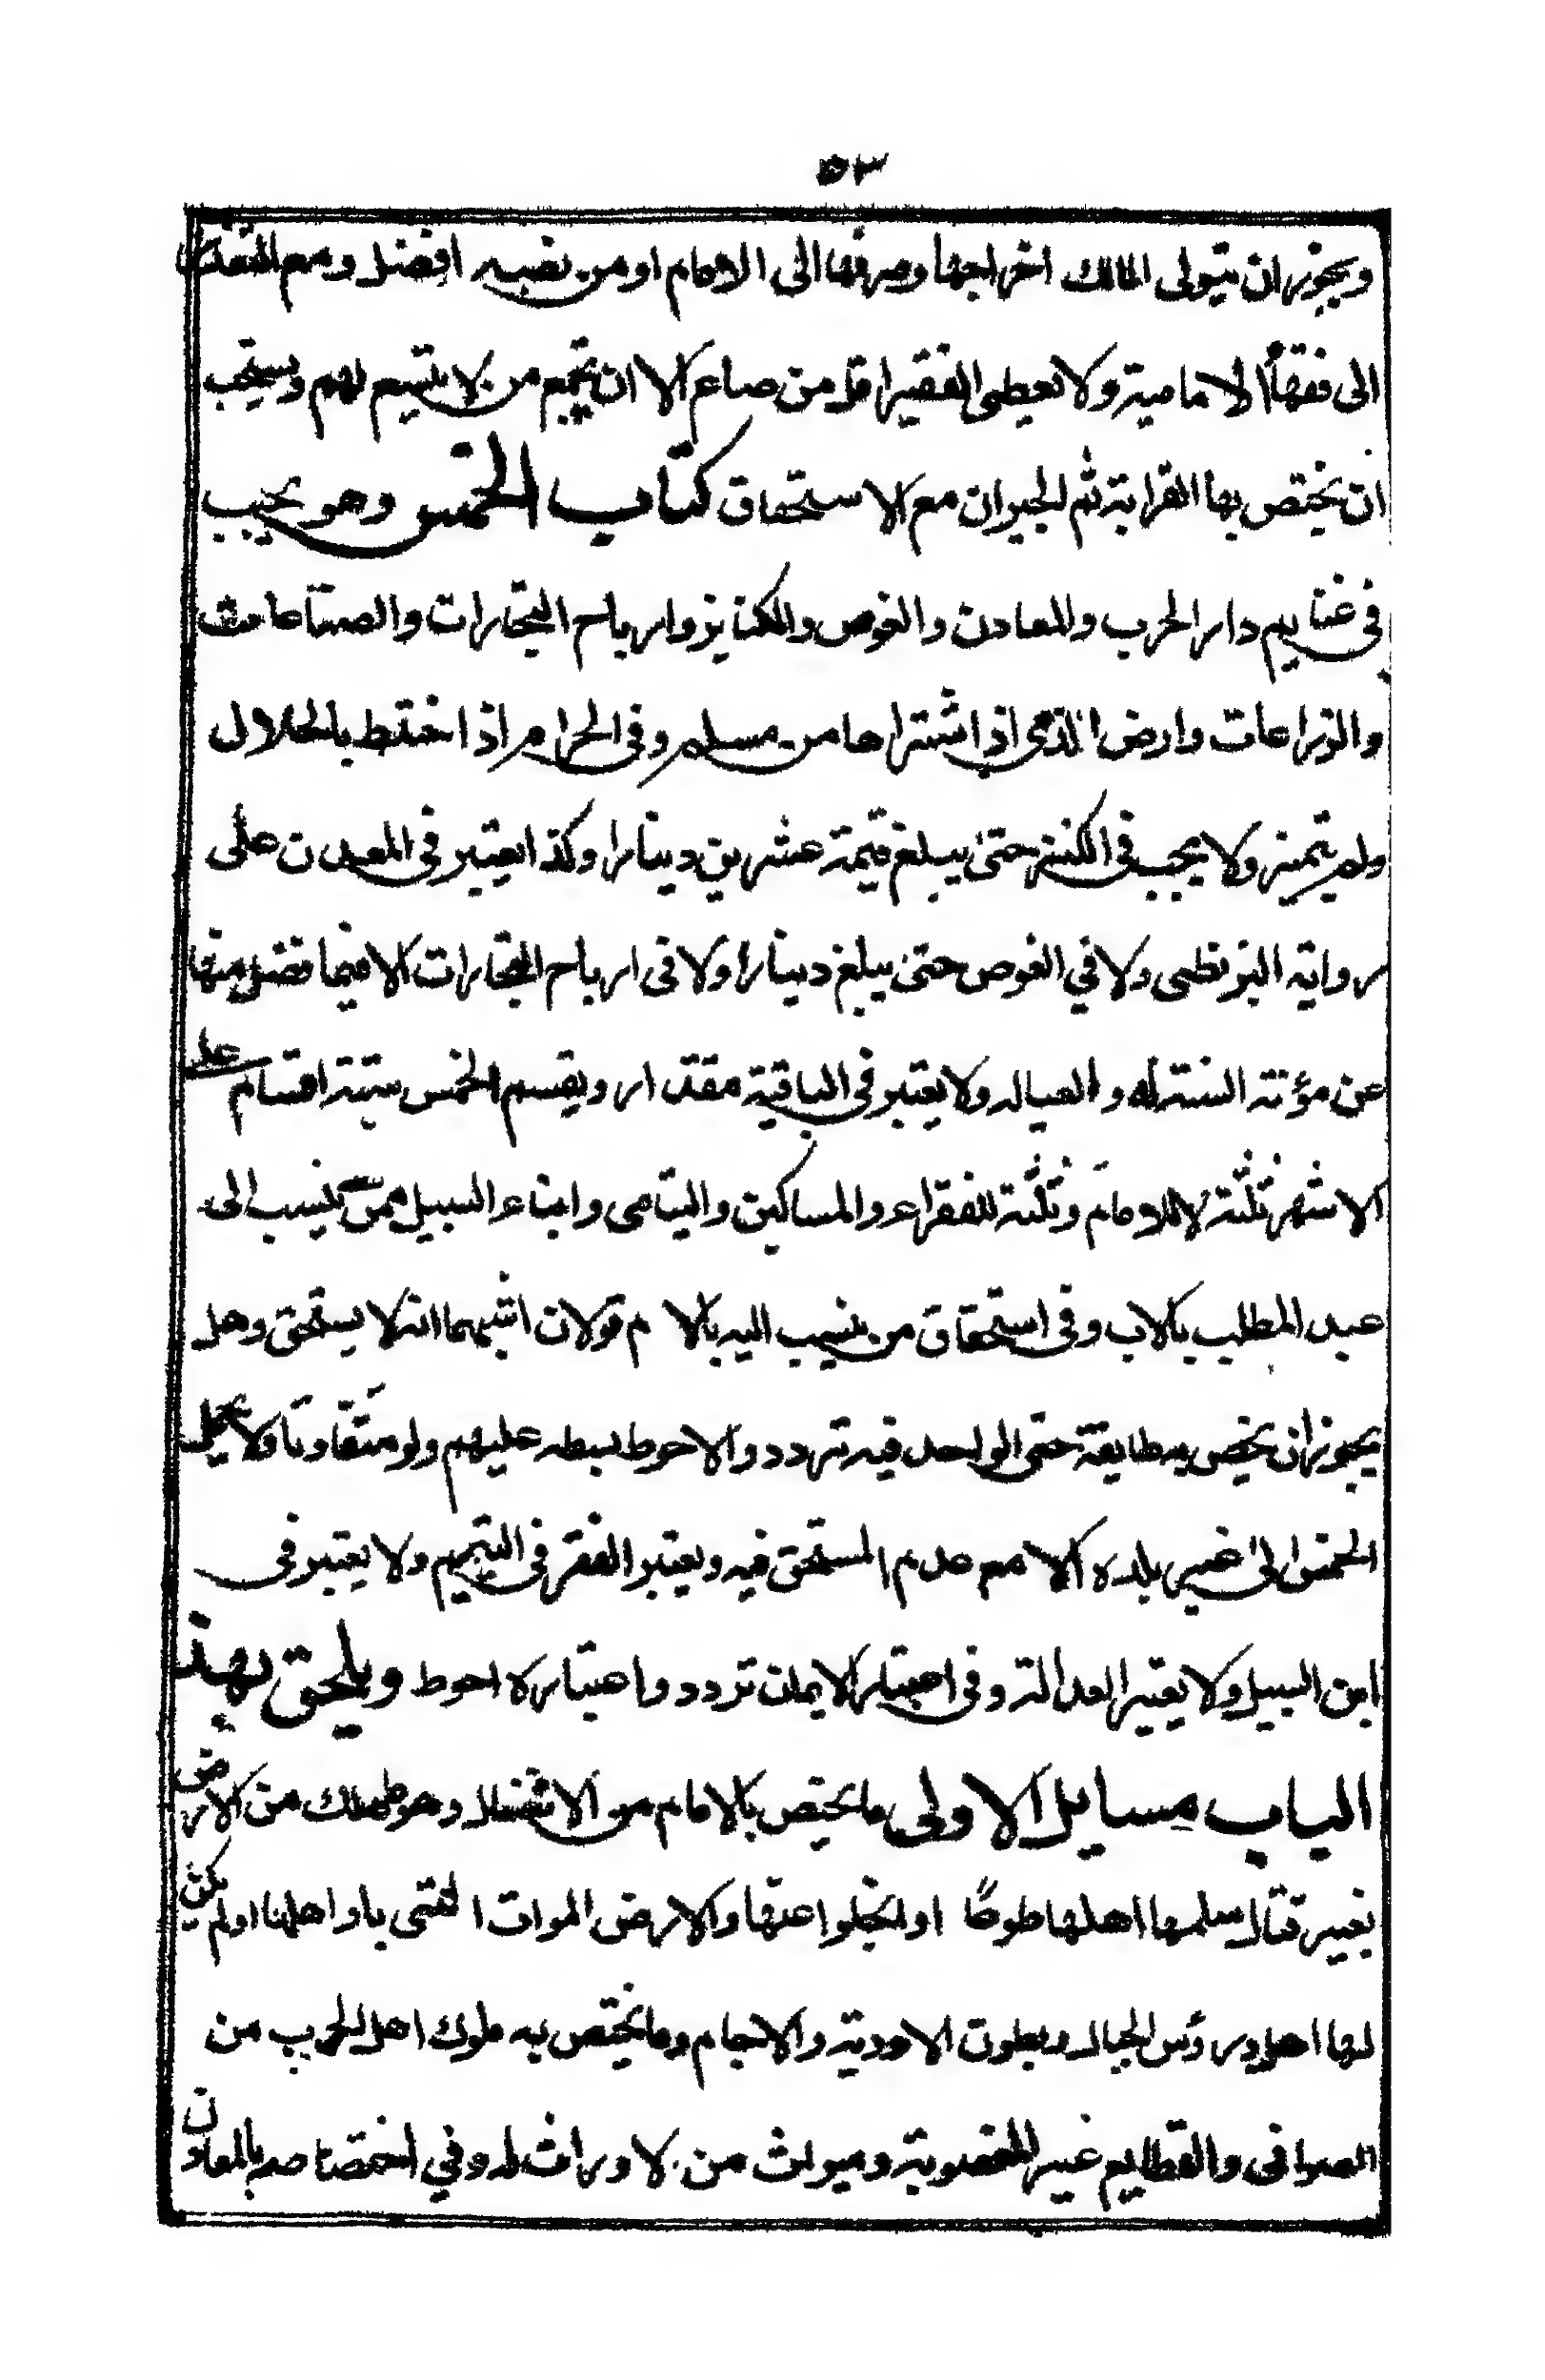 ٥٣
ويجوز ان يتولى المالك اخراجها وصرفها الى الامام او من نصبه افضل ومع التعذر
الى فقهاء الامامية ولا يعطى الفقير اقل من صاع الا ان يجتمع من لا يتسع لهم ويستحب
ان يختص بها القرابة ثم الجيران مع الاستحقاق كتاب الخمس وهو يجب
فى غنايم دار الحرب والمعادن والغوص والكنايز وارباح التجارات والصناعات
والزراعات وارض الذمى اذا اشتراها من مسلم وفى الحرام اذا اختلط بالحلال
ولم يتميز ولا يجب فى الكنز حتى يبلغ قيمة عشرين دينارا وكذا يعتبر فى المعدن على
رواية البزنطى ولا في الغوص حتى يبلغ دينارا ولا فى ارباح التجارات الا فيما فضل منها
عن مؤنة السنة له والعياله ولا يعتبر فى الباقية مقدار ويقسم الخمس ستة اقسام على
الاشهر ثلثة للامام وثلثة للفقراء والمساكين واليتامى وابناء السبيل ممن ينسب الى
عبد المطلب بالاب وفى استحقاق من ينسب اليه بالام قولان اشبههما انه لا يستحق وهل
يجوز ان يخص به طايفة حتى الواحد فيه تردد والاحوط بسطه عليهم ولو متفاوتا ولا يحمل
الخمس الى غير بلده الا مع عدم المستحق فيه ويعتبر الفقر فى اليتيم ولا يعتبر فى
ابن السبيل ولا يعتبر العدالة وفى اعتبار الايمان تردد واعتباره احوط ويلحق بهذا
الباب مسايل الاولى ما يختص بالامام من الانفال وهو ما يملك من الارض
بغير قتال سلمها اهلها طوعًا او انجلوا عنها والارض الموات التى باد اهلها او لم يكن
لها اهل ورؤس الجبال وبطون الاودية والاجام وما يختص به ملوك اهل الحرب من
الصوافى والقطايع غير المغصوبة وميراث من لا وراث له وفي اختصاصه بالمعادن